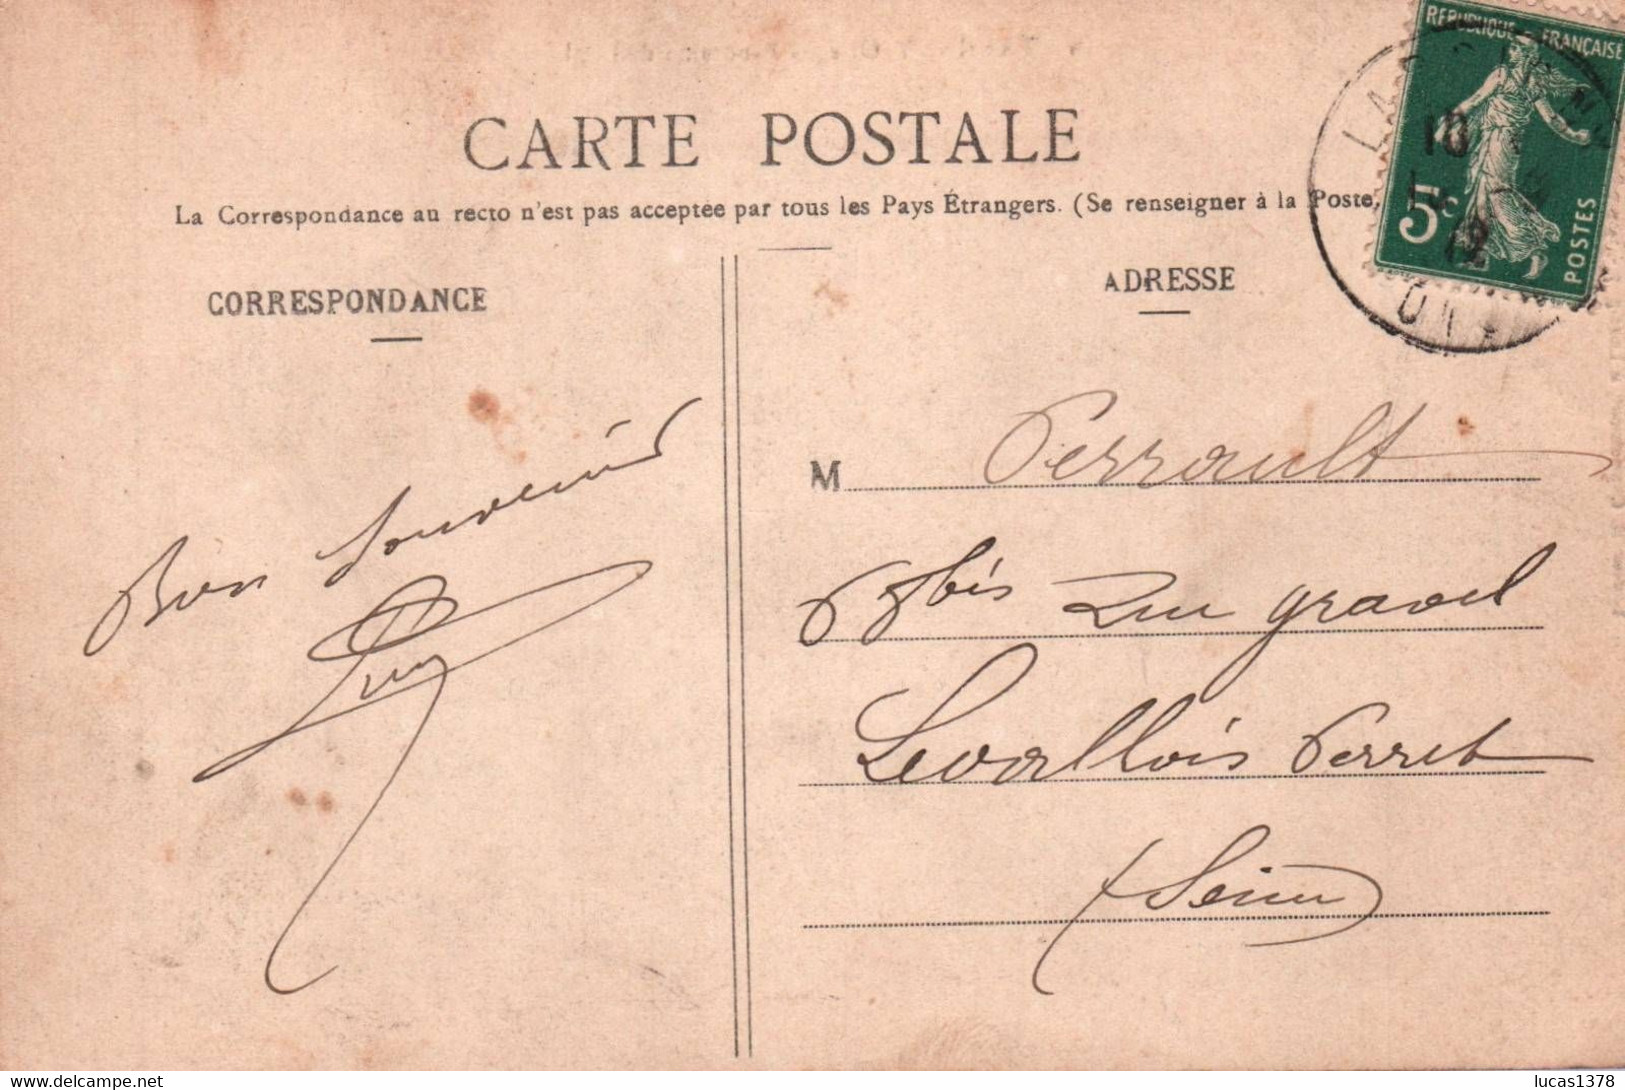 REPUBLIQUE FRANÇAISE
10
12
5c
POSTES
CARTE POSTALE
La Correspondance au recto n'est pas acceptée par tous les Pays Étrangers. (Se renseigner à la Poste,
CORRESPONDANCE
ADRESSE
Bon Souvenir
M Perrault
68 bis Rue gravel
Levallois Perret
(Seine)
lucas1378